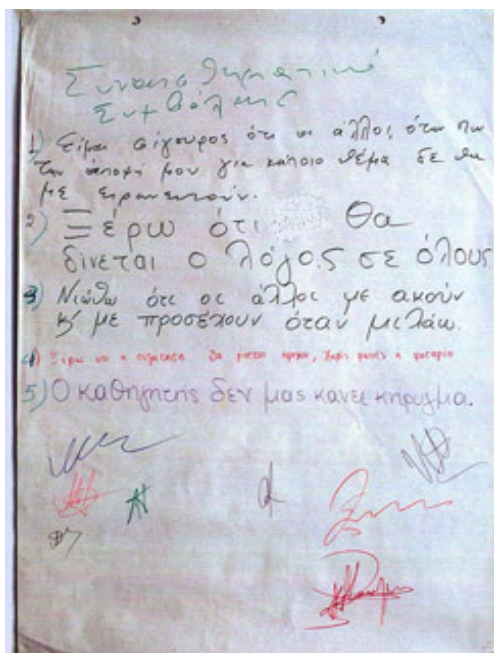 Συναισθηματικό
Συμβόλαιο
1) Είμαι σίγουρος ότι οι άλλοι, όταν πω
την άποψή μου για κάποιο θέμα δε θα
με ειρωνευτούν.
2) Ξέρω ότι Θα
δίνεται ο λόγος σε όλους
3) Νιώθω ότι οι άλλοι με ακούν
κ' με προσέχουν όταν μιλάω.
4) Ξέρω ότι η συζήτηση θα γίνεται ήρεμα, χωρίς φωνές η φασαρία
5) Ο καθηγητής δεν μας κάνει κήρυγμα.